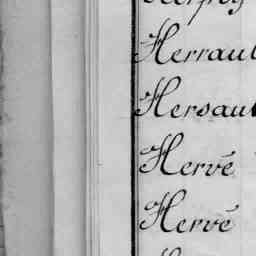 Herraul
Hersau
Hervé
Hervé